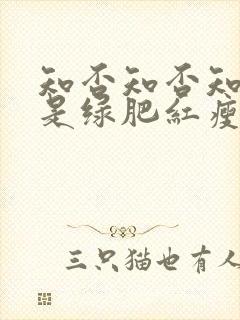 知否知否知
是绿肥红瘦
三只猫也有人